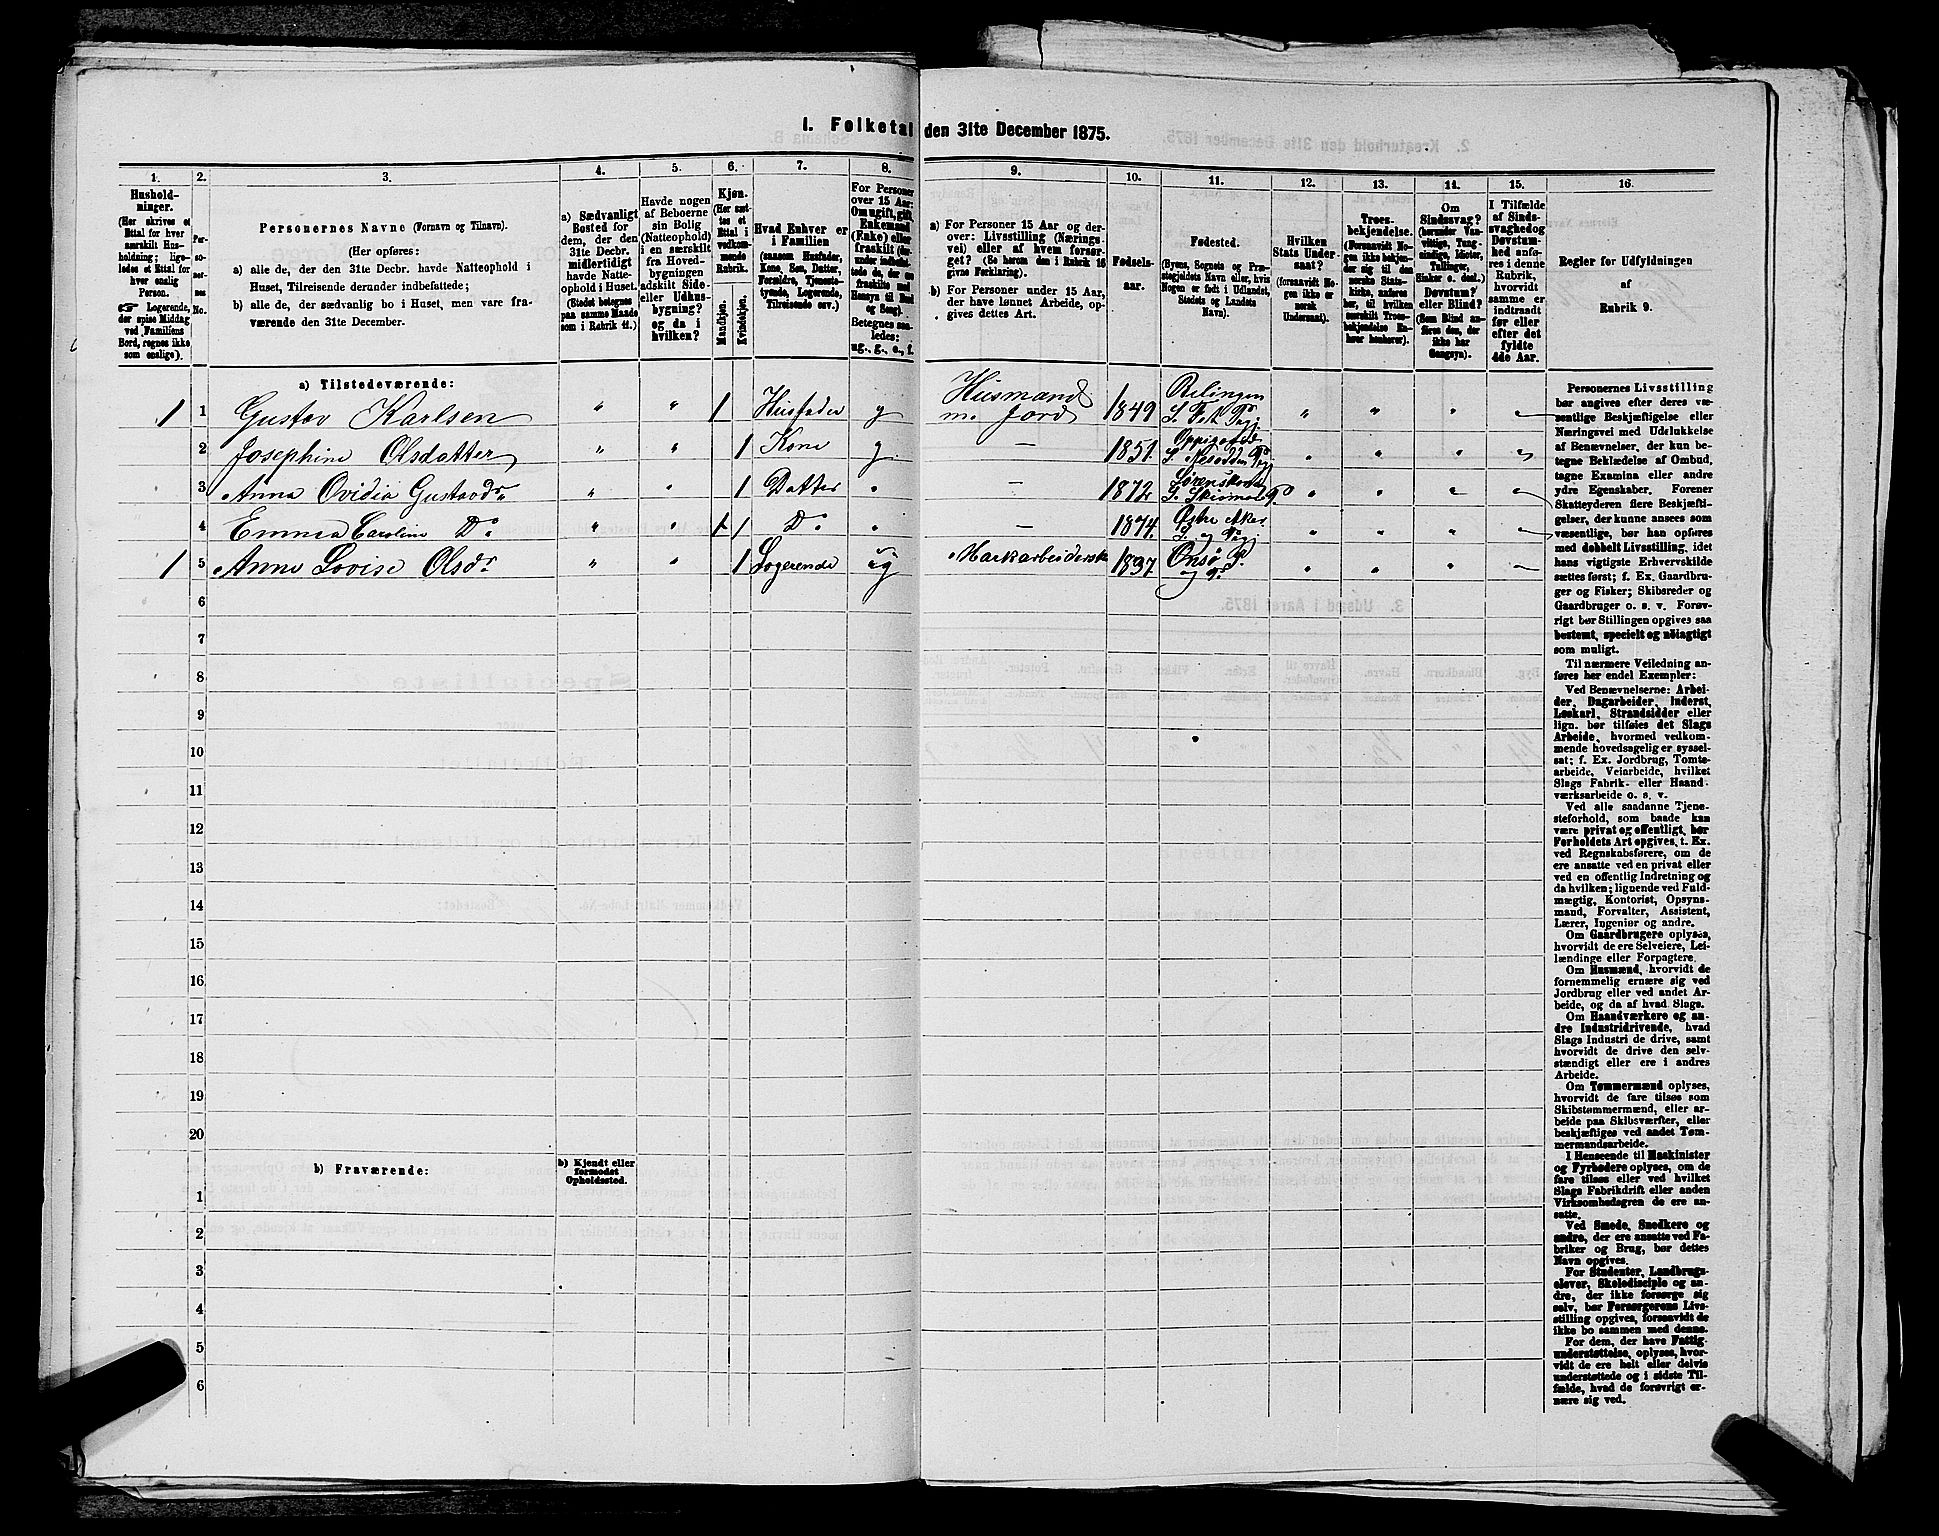 1. Folketal den 31te December 1875.
1. 2. 3. 4. 5. 6. 7. 8. 9. 10. 11. 12. 13. 14. 15. 16.
Hushold-
ninger.
(Her skrives et
Ettal for hver
særskilt Hus-
holdning; lige-
ledes et Ettal for
hver enslig
Person.
☞ Logerende,
der spise Middag
ved Familiens
Bord, regnes ikke
som enslige).
Per-
so-
ner-
nes
No.
Personernes Navne (Fornavn og Tilnavn).
(Her opføres:
a) alle de, der den 31te Decbr. havde Natteophold i
Huset, Tilreisende derunder indbefattede;
b) alle de, der sædvanlig bo i Huset, men vare fra-
værende den 31te December.
a) Sædvanligt
Bosted for
dem, der den
31te Decbr.
midlertidigt
havde Natte-
ophold i Huset.
(Stedet betegnes
paa samme Maade
som i Rubrik 11.)
Havde nogen
af Beboerne
sin Bolig
(Natteophold)
i en særskilt
fra Hoved-
bygningen
adskilt Side-
eller Udhus-
bygning?
og da i
hvilken?
Kjøn.
(Her sæt-
tes et
Ettal i
vedkom-
mende
Rubrik.
Mandkjøn.
Kvindekjøn.
Hvad Enhver er
i Familien
(saasom Husfader,
Kone, Søn, Datter,
Forældre, Tjeneste-
tyende, Logerende,
Tilreisende osv.)
For Personer
over 15 Aar:
Om ugift, gift,
Enkemand
(Enke) eller
fraskilt (der-
under indbefat-
tede de, der ere
fraskilte med
Hensyn til Bord
og Seng).
Betegnes saa-
ledes:
ug., g., e., f.
a) For Personer 15 Aar og der-
over: Livsstilling (Nærings-
vei) eller af hvem forsør-
get? (Se herom den i Rubrik 16
givne Forklaring).
b) For Personer under 15 Aar,
der have lønnet Arbeide, op-
gives dettes Art.
Fødsels-
aar.
Fødested.
(Byens, Sognets og Præ-
stegjeldets Navn eller, hvis
Nogen er født i Udlandet,
Stedets og Landets
Navn).
Hvilken
Stats Under-
saat?
(forsaavidt No-
gen ikke er
norsk
Undersaat).
Troes-
bekjendelse.
(Forsaavidt No-
gen ikke bekjen-
der sig til den
norske Stats-
kirke, anføres
her, til hvilken
særskilt Troes-
bekjendelse En-
hver henhører).
Om
Sindssvag?
(herunder Van-
vittige, Tung-
sindige, Idioter,
Tullinger,
Sinker o. desl.).
Døvstum?
eller Blind?
(Som Blind an-
føres den, der
ikke har
Gangsyn).
I Tilfælde
af Sinds-
svaghed og
Døvstum-
hed anfø-
res i denne
Rubrik,
hvorvidt
samme er
indtraadt
før eller
efter det
fyldte
4de Aar.
Regler for Udfyldningen
af
Rubrik 9.
a) Tilstedeværende:
1 1 Gustav Karlsen " " 1 Husfader g Husmand m. Jord 1849 Relingen S. Fet Pgj. " " " "
2 Josephine Olsdatter " " 1 Kone g — 1851. Oppigaard S. Nesodden Pgj " " " "
3 Anna Ovidia Gustavdr " " 1 Datter " — 1872 " " " "
4 Emma Caroline Do " " 1 1 Do " — 1874. Østre Aker S. og Pgj " " " "
1 5 Anne Lovise Olsdr " " 1 Logerende ug Markarbeiderske 1837. Onsø S. og P. " " " "
6
7
8
9
10
11
12
13
14
15
16
17
18
19
20
b) Fraværende:
b) Kjendt eller
formodet
Opholdssted.
1
2
3
4
5
6
Personernes Livsstilling
bør angives efter deres væ-
sentlige Beskjæftigelse eller
Næringsvei med Udelukkelse
af Benævnelser, der kun be-
tegne Beklædelse af Ombud,
tagne Examina eller andre
ydre Egenskaber. Forener
Skatteyderen flere Beskjæfti-
gelser, der kunne ansees som
væsentlige, bør han opføres
med dobbelt Livsstilling, idet
hans vigtigste Erhvervskilde
sættes først; f. Ex. Gaardbru-
ger og Fisker; Skibsreder og
Gaardbruger o. s. v. Forøv-
rigt bør Stillingen opgives saa
bestemt, specielt og nøiagtigt
som muligt.
Til nærmere Veiledning an-
føres her endel Exempler:
Ved Benævnelserne: Arbei-
der, Dagarbeider, Inderst,
Løskarl, Strandsidder eller
lign. bør tilføies det Slags
Arbeide, hvormed vedkom-
mende hovedsagelig er syssel-
sat; f. Ex. Jordbrug, Tomte-
arbeide, Veiarbeide, hvilket
Slags Fabrik- eller Haand-
værksarbeide o. s. v.
Ved alle saadanne Tjene-
steforhold, som baade kan
være privat og offentligt, bør
Forholdets Art opgives, t. Ex.
ved Regnskabsførere, om de
ere ansatte ved en privat eller
ved en offentlig Indretning og
da hvilken; lignende ved Fuld-
mægtig, Kontorist, Opsyns-
mand, Forvalter, Assistent,
Lærer, Ingeniør og andre.
Om Gaardbrugere oplyses,
hvorvidt de ere Selveiere, Lei-
lændinge eller Forpagtere.
Om Husmænd, hvorvidt de
fornemmelig ernære sig ved
Jordbrug eller ved andet Ar-
beide, og da af hvad Slags.
Om Haandværkere og an-
dre Industridrivende, hvad
Slags Industri de drive, samt
hvorvidt de drive den selv-
stændigt eller ere i andres
Arbeide.
Om Tømmermænd oplyses,
hvorvidt de fare tilsøs som
Skibstømmermænd, eller ar-
beide paa Skibsværfter, eller
beskjæftiges ved andet Tøm-
mermandsarbeide.
I Henseende til Maskinister
og Fyrbødere oplyses, om de
fare tilsøs eller ved hvilket
Slags Fabrikdrift eller anden
Virksomhedsgren de ere an-
satte.
Ved Smede, Snedkere og
andre, der ere ansatte ved Fa-
briker og Brug, bør dettes
Navn opgives.
For Studenter, Landbrugs-
elever, Skoledisciple og an-
dre, der ikke forsørge sig
selv, bør Forsørgerens Livs-
stilling opgives, forsaavidt de
ikke bo sammen med denne.
For dem, der have Fattig-
understøttelse, oplyses, hvor-
vidt de ere helt eller delvis
understøttede og i sidste Til-
fælde, hvad de forøvrigt er-
nære sig ved.